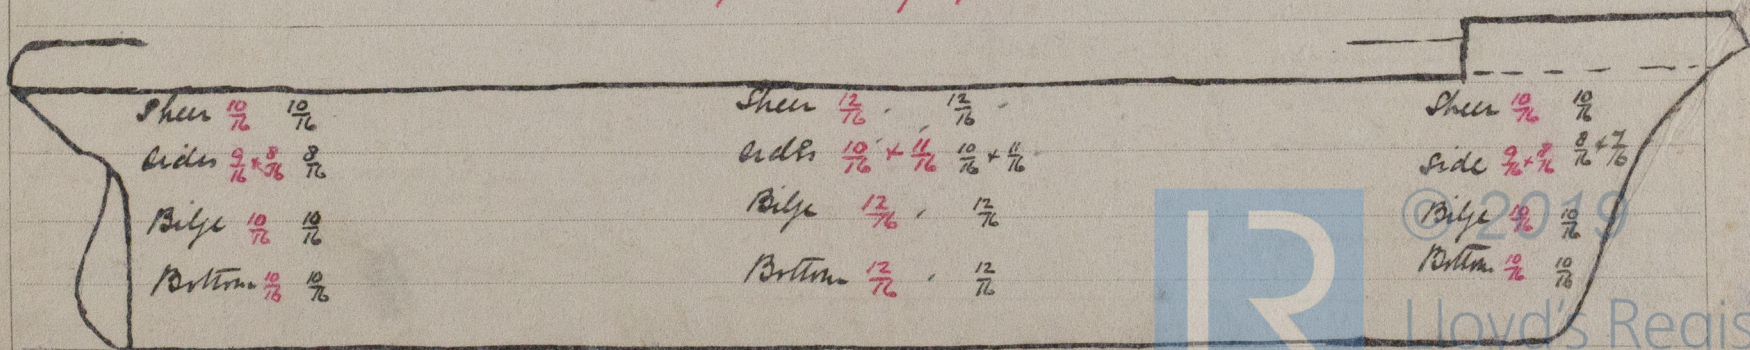 Sheer 10/16 10/16
Sides 9/16 + 8/16 8/16
Bilge 10/16 10/16
Bottom 10/16 10/16
Sheer 12/16 12/16
Sides 10/16 + 11/16 10/16 + 11/16
Bilge 12/16 12/16
Bottom 12/16 12/16
Sheer 10/16 10/16
Side 9/16 + 8/16 8/16 + 7/16
Bilge 10/16 10/16
Bottom 10/16 10/16
© 2019
LR
Lloyd's Regis